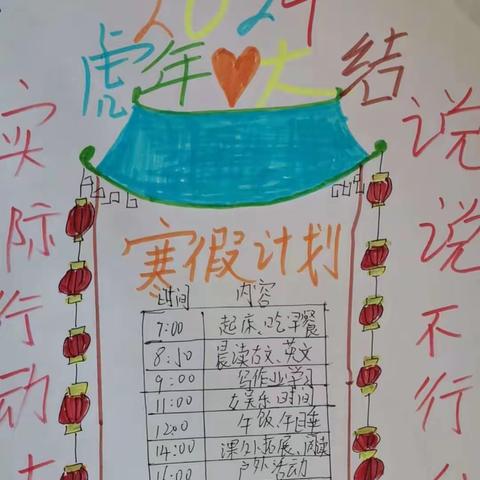 2024
虎年大结
实际行动
说说不行
寒假计划
时间 内容
7:00 起床、吃早餐
8:30 晨读古文、英文
9:00 写作业学习
11:00 娱乐时间
12:00 午饭、午睡
14:00 课外拓展、阅读
16:00 户外活动